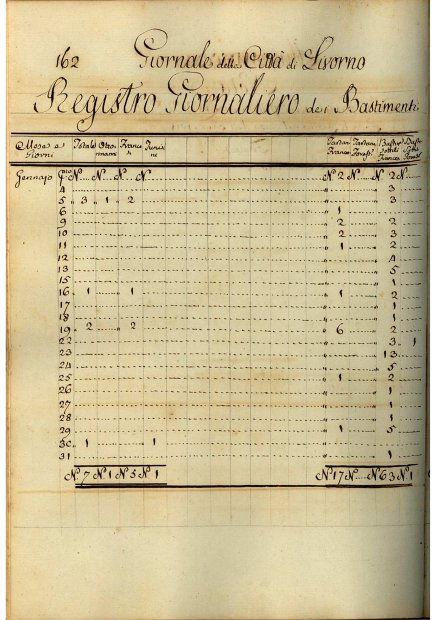 162 Giornale della Città di Livorno
Registro Giornaliero dei Bastimenti
Mese e Giorni Totale Otto mani Francesi
Gennajo Pmo N. N. N. N. N. 2 N. N. 2 N.
4 3
5 3 1 2 3
6 1
9 2 2
10 2 3
11 1 2
12 4
13 5
15 1
16 1 1 1 2
17 1
18 1
19 2 2 6 2
22 3 1
23 13
24 5
25 1 2
26 1
27 1
28 1
29 1 5
30 1 1
31 1
N. 7 N. 1 N. 5 N. 1 N. 17 N. N. 63 N. 1